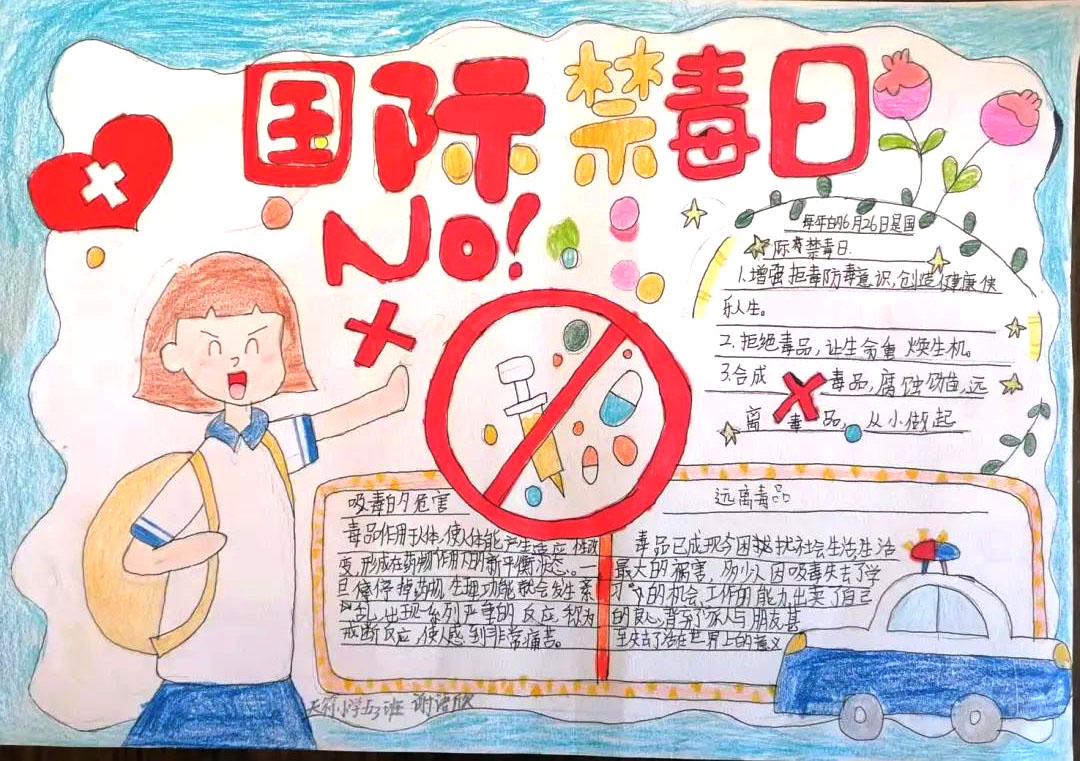 国际禁毒日
No!
每年的6月26日是国
际禁毒日.
1.增强拒毒防毒意识,创造健康快
乐人生。
2.拒绝毒品,让生命重焕生机。
3.合成毒品,腐蚀幼苗,远
离毒品,从小做起
吸毒的危害
毒品作用于人体,使人体能产生适应性改
变,形成在药物作用下的新平衡状态。一
旦停掉药物,生理功能就会发生紊
乱,出现一系列严重的反应,称为
戒断反应,使人感到非常痛苦。
远离毒品
毒品已成现今困扰社会生活,生活
最大的祸害,多少人因吸毒失去了学
习的机会,工作的能力,出卖了自己
的良心,背弃了家人与朋友,甚
至失去了活在世界上的意义
小学五3班 谢语欣